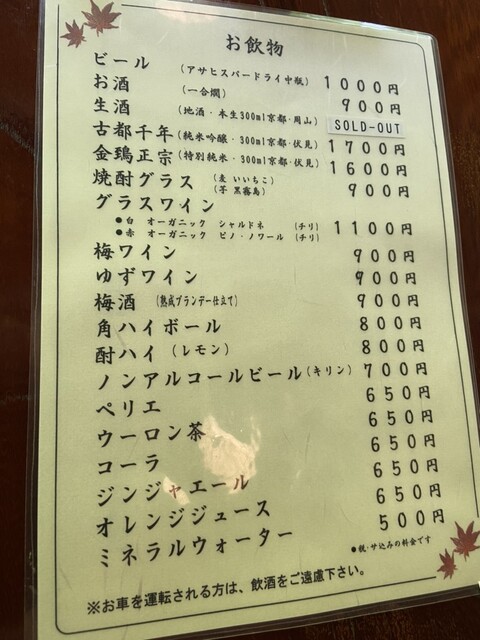 お飲物
ビール (アサヒスパードライ中瓶) 1000円
お酒 (一合燗) 900円
生酒 (地酒・本生300ml京都・周山) SOLD-OUT
古都千年 (純米吟醸・300ml京都・伏見) 1700円
金鵄正宗 (特別純米・300ml京都・伏見) 1600円
焼酎グラス (麦 いいちこ) (芋 黒霧島) 900円
グラスワイン
●白 オーガニック シャルドネ (チリ) 1100円
●赤 オーガニック ピノ・ノワール (チリ)
梅ワイン 900円
ゆずワイン 900円
梅酒 (熟成ブランデー仕立て) 900円
角ハイボール 800円
酎ハイ (レモン) 800円
ノンアルコールビール (キリン) 700円
ペリエ 650円
ウーロン茶 650円
コーラ 650円
ジンジャエール 650円
オレンジジュース 650円
ミネラルウォーター 500円
●税・サ込みの料金です
※お車を運転される方は、飲酒をご遠慮下さい。